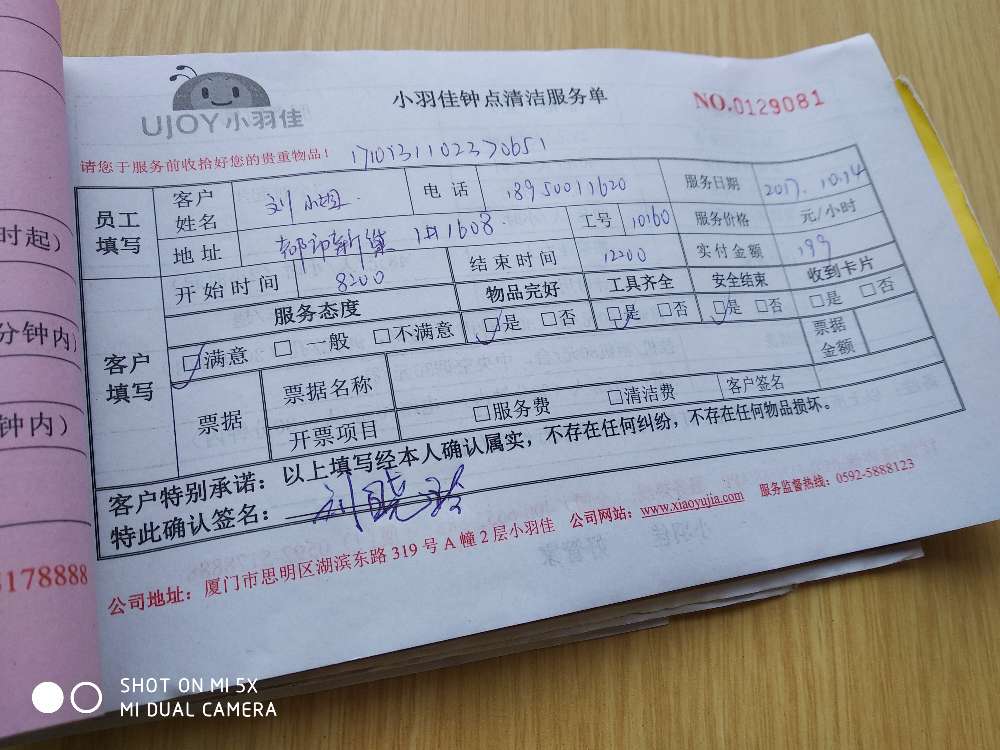 UJOY小羽佳
小羽佳钟点清洁服务单
NO.0129081
请您于服务前收拾好您的贵重物品!
员工填写
客户姓名 刘小姐 电话 18950011620 服务日期 2017.10.14
地址 都市新 1#1608 工号 10160 服务价格 元/小时
开始时间 8:00 结束时间 12:00 实付金额 199
客户填写
服务态度 物品完好 工具齐全 安全结束 收到卡片
□满意 □一般 □不满意 □是 □否 □是 □否 □是 □否 □是 □否
票据 票据名称 票据金额
开票项目 □服务费 □清洁费 客户签名
客户特别承诺:以上填写经本人确认属实,不存在任何纠纷,不存在任何物品损坏。
特此确认签名: 刘晓玲
公司地址:厦门市思明区湖滨东路319号A幢2层小羽佳 公司网站:www.xiaoyujia.com 服务监督热线:0592-5888123
时起)
分钟内)
钟内)
5178888
SHOT ON MI 5X
MI DUAL CAMERA